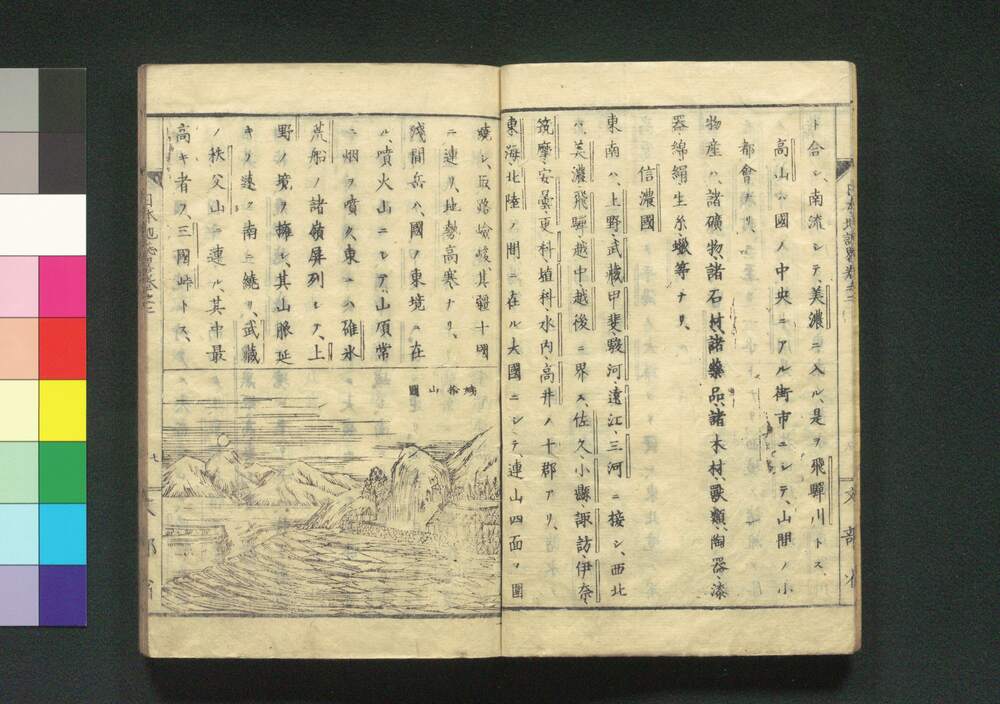 ト合シ、南流シテ、美濃ニ入ル、是ヲ飛驒川トス、
高山ハ國ノ中央ニアル街市ニシテ、山間ノ小
都會ナリ、
物産ハ、諸礦物、諸石材、諸藥品、諸木材、獸類、陶器、漆
器、綿、絹、生糸、蠟等ナリ、
信濃國
東南ハ、上野、武藏、甲斐、駿河、遠江、三河ニ接シ、西北
ハ、美濃、飛驒、越中、越後ニ界ス、佐久、小縣、諏訪、伊奈、
筑摩、安曇、更科、埴科、水内、高井ノ十郡アリ、
東海、北陸ノ間ニ在ル大國ニシテ、連山四面ヲ圍
繞シ、阪路嶮峻、其疆十國
ニ連リ、地勢高寒ナリ、
淺間岳ハ、國ノ東境ニ在
ル、噴火山ニシテ、山頂常
ニ烟ヲ噴ク、東ニハ碓氷
荒船ノ諸嶺屏列シテ、上
野ノ境ヲ擁シ、其山脈延
キテ遠ク南ニ繞リ、武藏
ノ秩父山ニ連ル、其中最
高キ者ヲ、三國峠トス、
姨捨山圖
日本地誌略卷之二
七
文部省